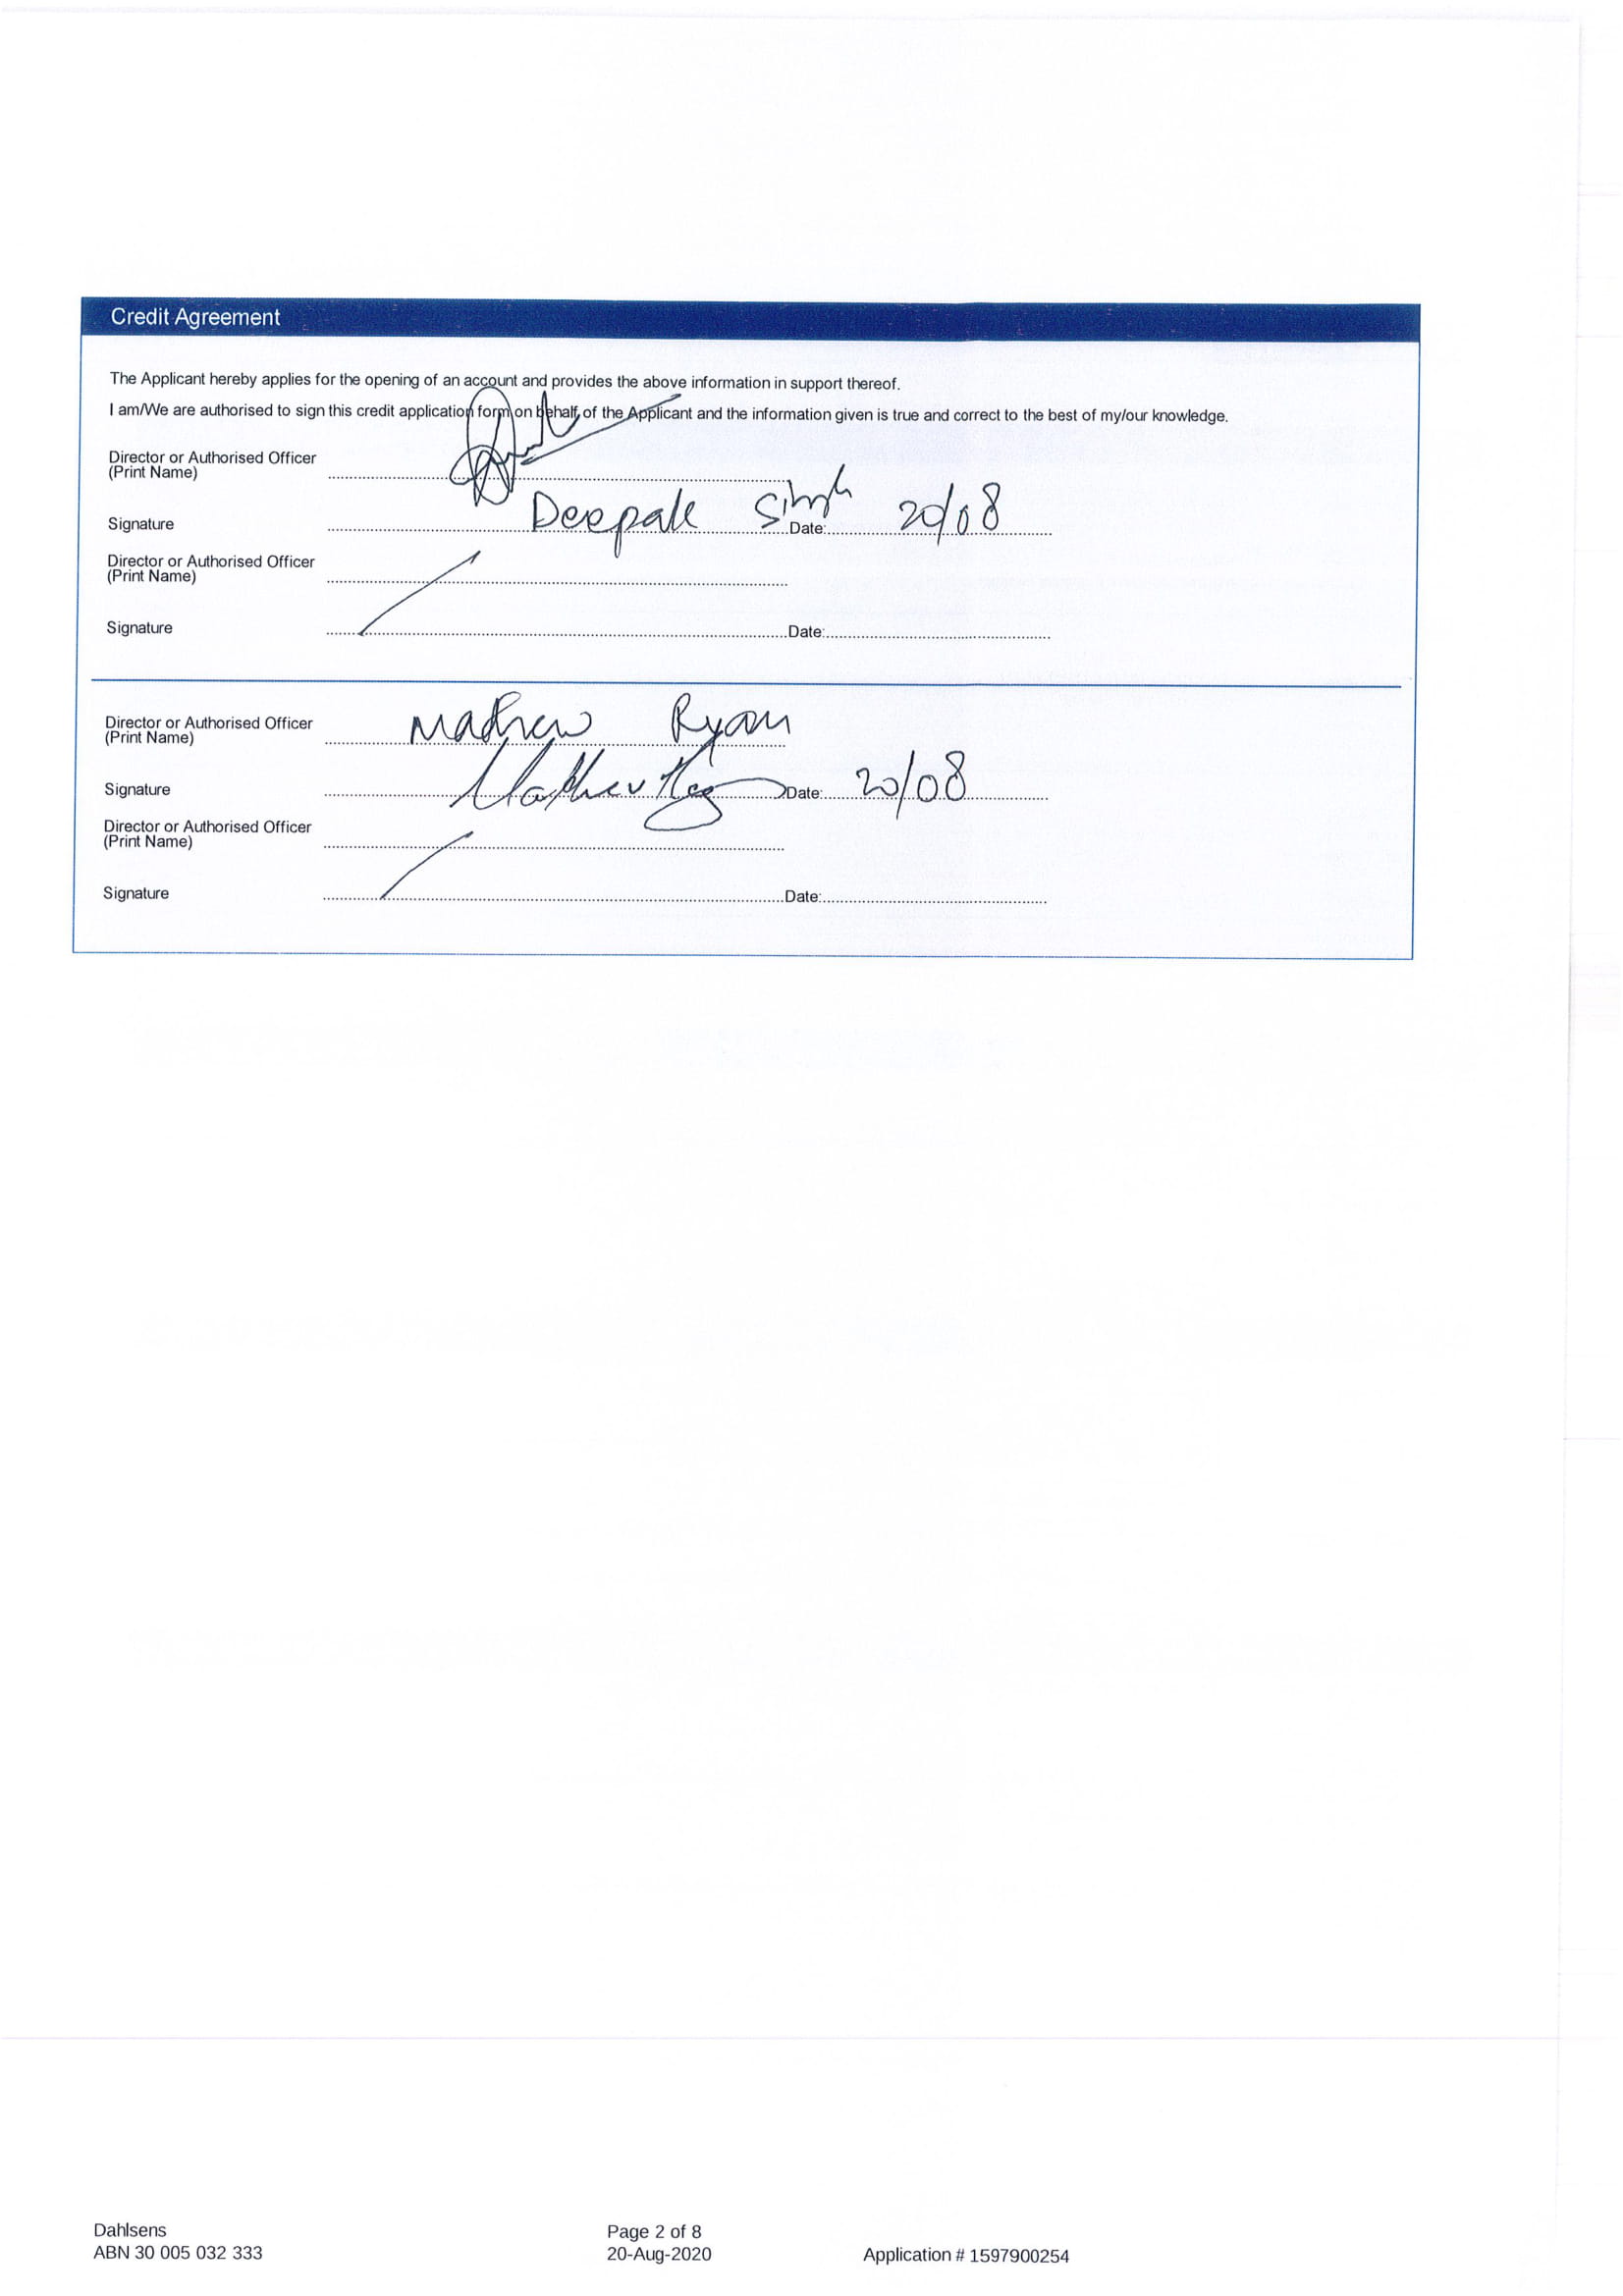 Credit Agreement
The Applicant hereby applies for the opening of an account and provides the above information in support thereof.
I am/We are authorised to sign this credit application form on behalf of the Applicant and the information given is true and correct to the best of my/our knowledge.
Director or Authorised Officer
(Print Name)
Signature Deepak Singh Date: 20/08
Director or Authorised Officer
(Print Name)
Signature Date:
Director or Authorised Officer
(Print Name) Mathew Ryan
Signature Date: 20/08
Director or Authorised Officer
(Print Name)
Signature Date:
Dahlsens Page 2 of 8
ABN 30 005 032 333 20-Aug-2020 Application # 1597900254